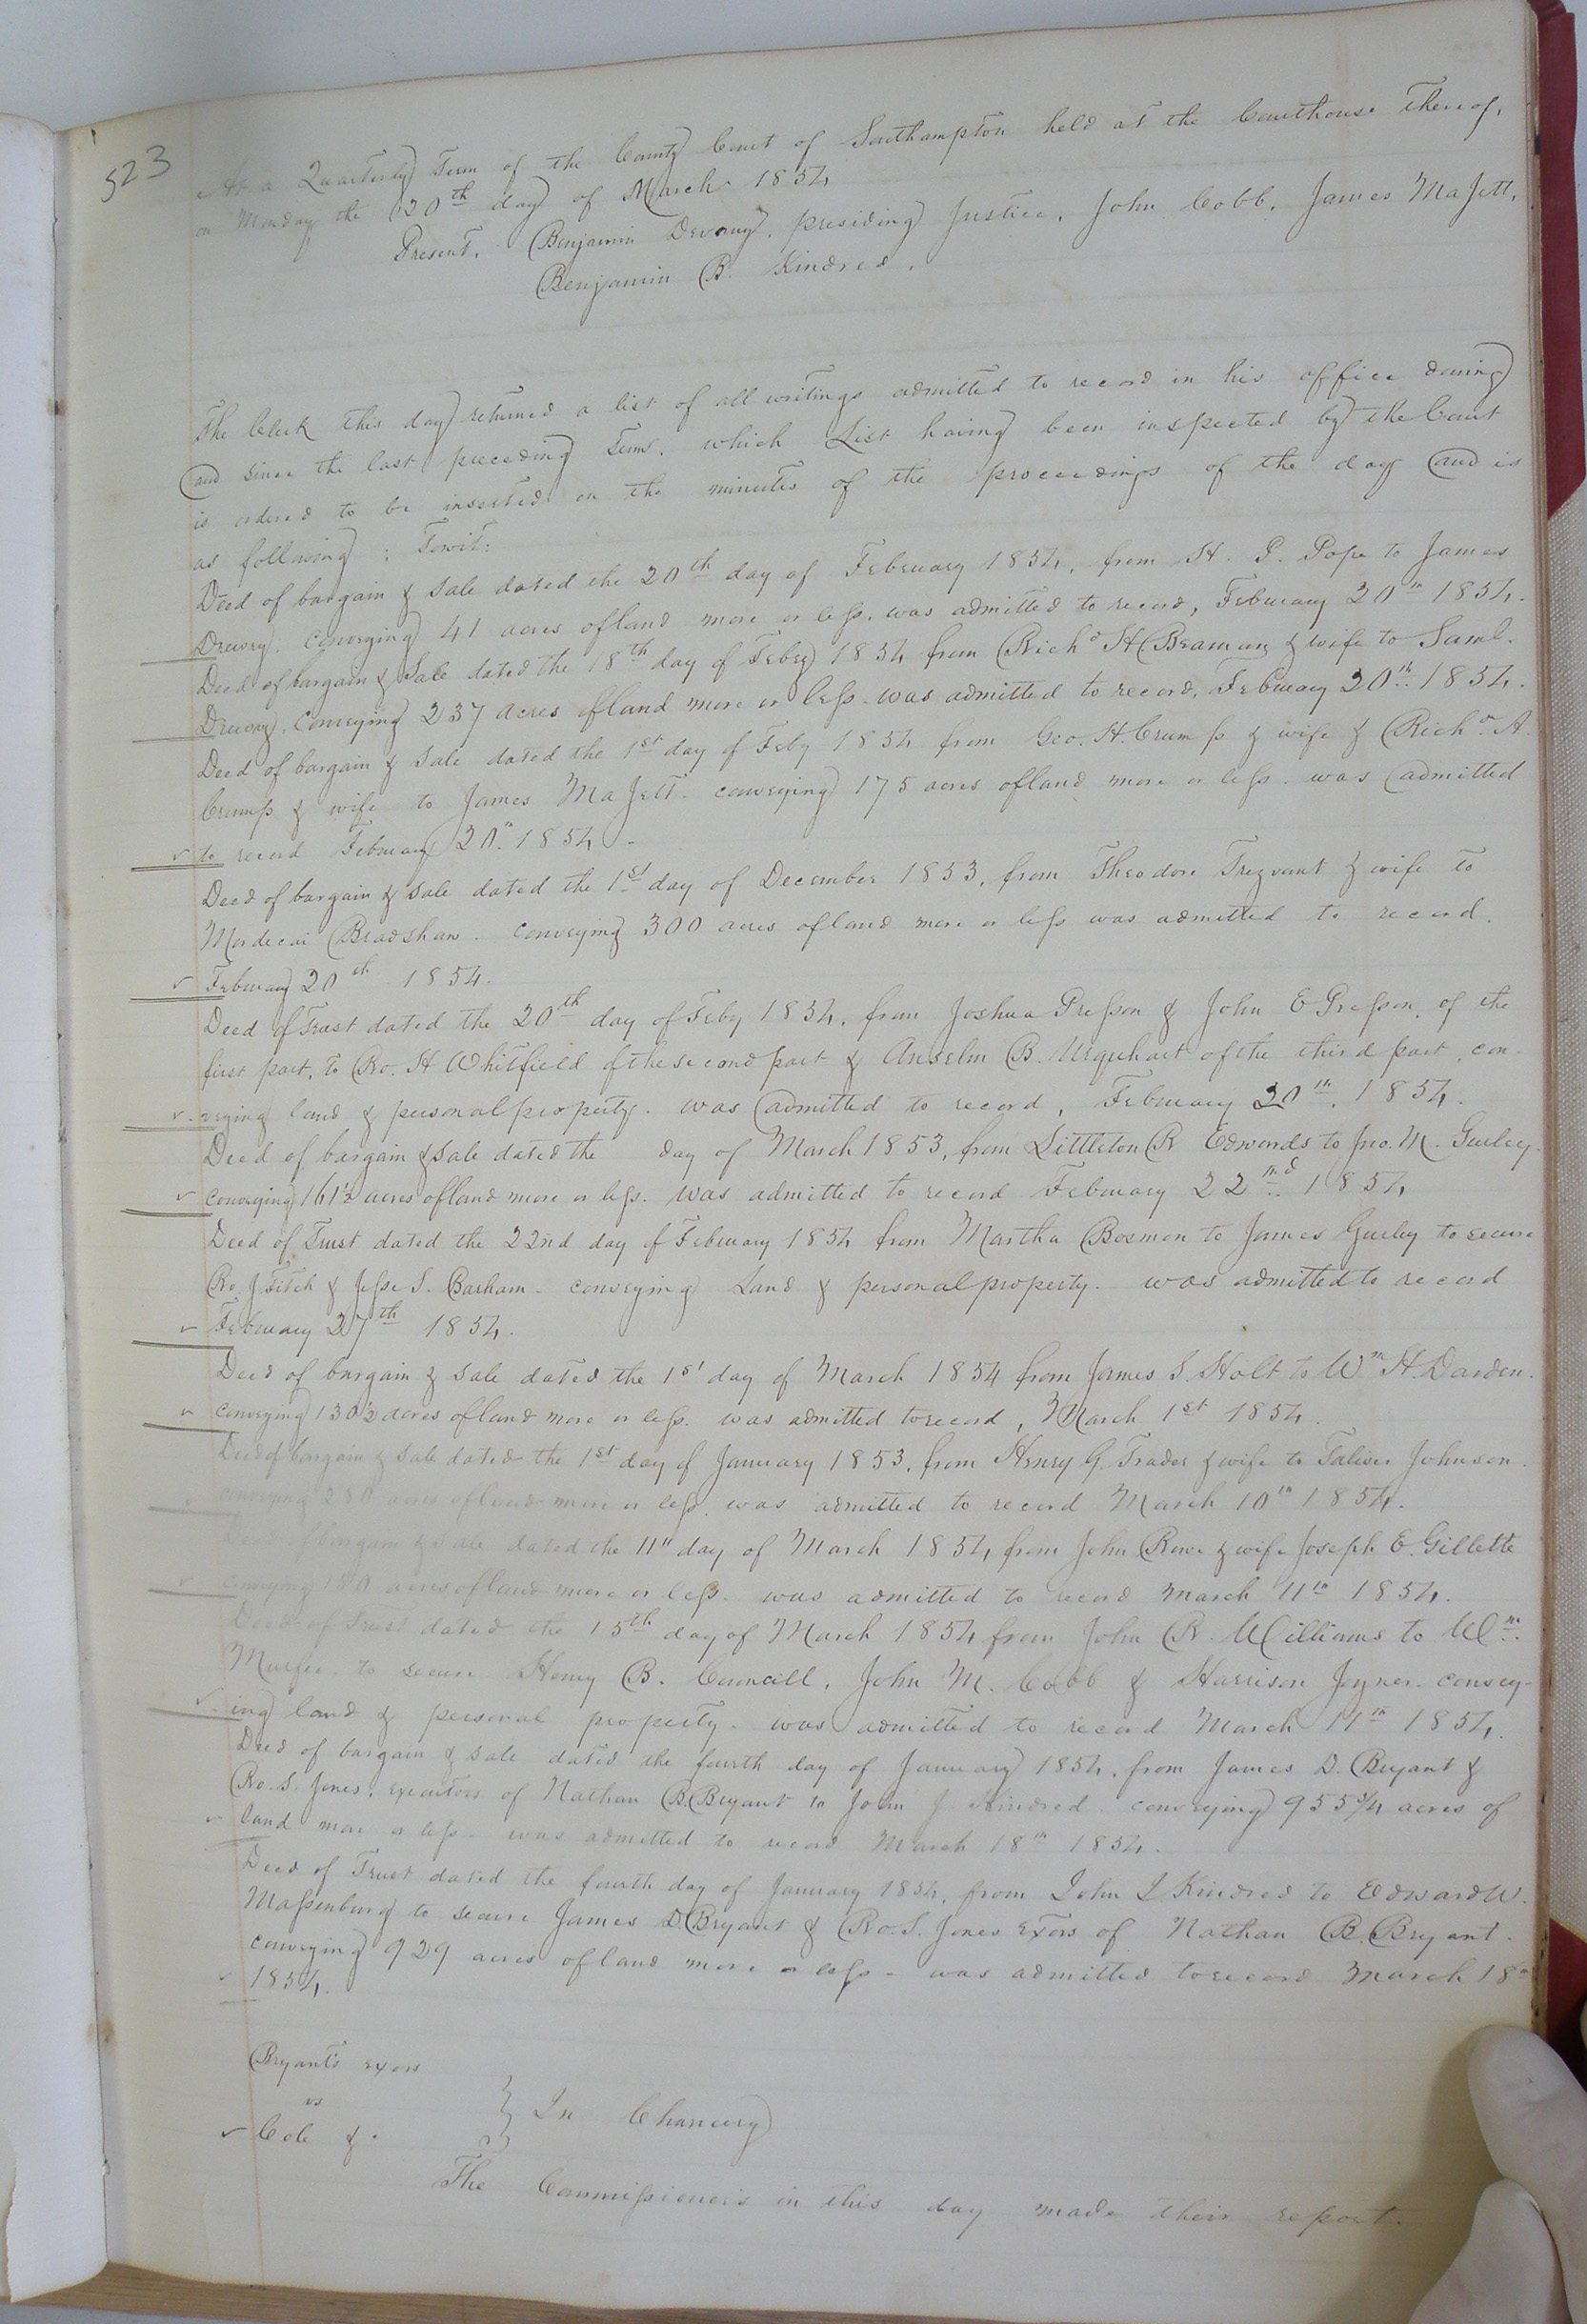 523
At a Quarterly Term of the County Court of Southampton held at the Courthouse thereof,
on Monday the 20th day of March 1854
Present, Benjamin Devany, presiding Justice, John Cobb, James Majett,
Benjamin B. Kindred.
The Clerk this day returned a list of all writings admitted to record in his office during
and since the last preceeding Term, which List having been inspected by the Court
is ordered to be inserted in the minutes of the proceedings of the day and is
as following; Towit:
Deed of bargain & sale dated the 20th day of February 1854, from H. P. Pope to James
Drewry. Conveying 41 acres of land more or less. was admitted to record, February 20th 1854.
Deed of bargain & Sale dated the 18th day of Feby 1854 from Richd H Beaman & wife to Saml.
Drewry. Conveying 237 acres of land more or less. was admitted to record, February 20th 1854.
Deed of bargain & Sale dated the 1st day of Feby 1854 from Geo. H. Crump & wife & Richd A.
Crump & wife to James Majett. conveying 175 acres of land more or less. was admitted
to record February 20th 1854 -
Deed of bargain & sale dated the 1st day of December 1853, from Theodore Trezvant & wife to
Mordecai Bradshaw. conveying 300 acres of land more or less was admitted to record.
February 20th 1854.
Deed of Trust dated the 20th day of Feby 1854, from Joshua Presson & John E Presson, of the
first part, to Ro. H Whitfield of the second part & Anselm B. Urquhart of the third part, con-
veying land & personal property. was admitted to record, February 20th, 1854.
Deed of bargain & Sale dated the day of March 1853, from Littleton R Edwards to Jno. M. Gurley
conveying 161½ acres of land more or less. was admitted to record February 22nd 1854
Deed of Trust dated the 22nd day of February 1854 from Martha Bozmon to James Gurley to secure
Ro. J. Fitch & Jesse S. Barham. conveying Land & personal property. was admitted to record
February 27th 1854.
Deed of bargain & Sale dated the 1st day of March 1854 from James S. Holt to Wm H. Darden.
conveying 130½ acres of land more or less. was admitted to record, March 1st 1854.
Deed of bargain & Sale dated the 1st day of January 1853, from Henry G. Trader & wife to Johnson.
conveying 280 acres of land more or less. was admitted to record March 10th 1854.
Deed of bargain & Sale dated the 11th day of March 1854, from John Rowe & wife Joseph E. Gillette
conveying 180 acres of land more or less. was admitted to record March 11th 1854.
Deed of Trust dated the 15th day of March 1854 from John R. Williams to Wm.
Murfee. to secure Henry B. Councill, John M. Cobb & Harrison Joyner. convey-
ing land & personal property. was admitted to record March 17th 1854.
Deed of bargain & Sale dated the fourth day of January 1854, from James D. Bryant &
Ro. S. Jones, executors of Nathan B. Bryant to John J. Kindred. conveying 955¾ acres of
land more or less - was admitted to record March 18th 1854.
Deed of Trust dated the fourth day of January 1854, from John J Kindred to Edward W.
Massenburg to secure James D. Bryant & Ro. S. Jones Exors of Nathan B. Bryant.
conveying 929 acres of land more or less - was admitted to record March 18th
1854.
Bryant's exors
vs
Cole & .
In Chancery
The Commissioners in this day made their report.